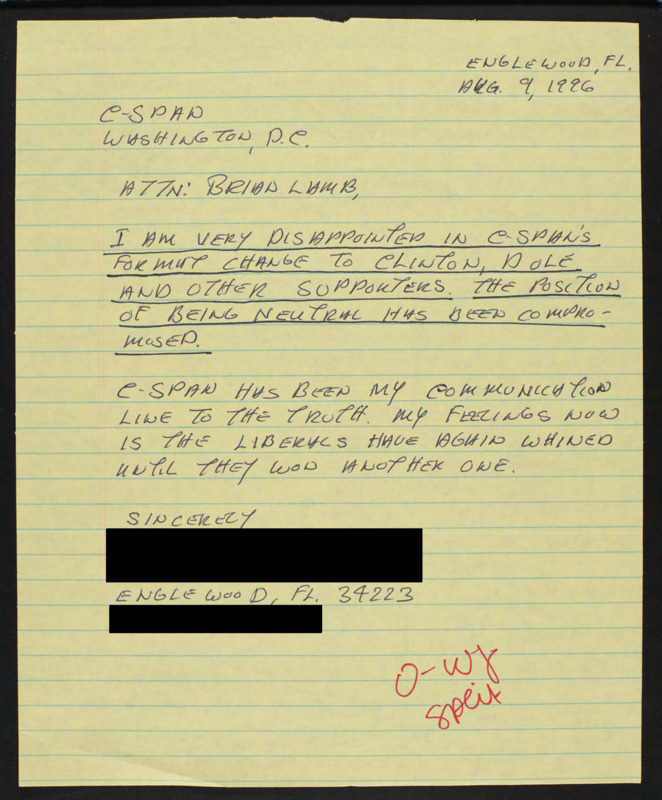 ENGLEWOOD, FL.
AUG. 9, 1996
C-SPAN
WASHINGTON, D.C.
ATTN: BRIAN LAMB,
I AM VERY DISAPPOINTED IN C-SPAN'S
FORMAT CHANGE TO CLINTON, DOLE
AND OTHER SUPPORTERS. THE POSITION
OF BEING NEUTRAL HAS BEEN COMPRO-
MOSED.
C-SPAN HAS BEEN MY COMMUNICATION
LINE TO THE TRUTH. MY FEELINGS NOW
IS THE LIBERALS HAVE AGAIN WHINED
UNTIL THEY WON ANOTHER ONE.
SINCERELY
ENGLEWOOD, FL. 34223
split